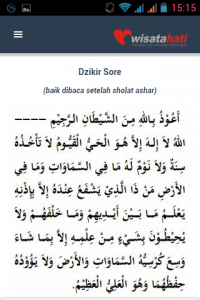 15:15
wisatahati
Dzikir Sore
(baik dibaca setelah sholat ashar)
أَعُوْذُ بِاللهِ مِنَ الشَّيْطَانِ الرَّجِيْمِ ————
اللهُ لاَ إِلـهَ إِلاَّ هُوَ الْحَيُّ الْقَيُّومُ لاَ تَأْخُذُهُ
سِنَةٌ وَلاَ نَوْمٌ لَهُ مَا فِي السَّمَاوَاتِ وَمَا فِي
الأَرْضِ مَنْ ذَا الَّذِيْ يَشْفَعُ عِنْدَهُ إِلاَّ بِإِذْنِهِ
يَعْلَمُ مَا بَيْنَ أَيْدِيهِمْ وَمَا خَلْفَهُمْ وَلاَ
يُحِيْطُوْنَ بِشَيْءٍ مِنْ عِلْمِهِ إِلاَّ بِمَا شَاءَ
وَسِعَ كُرْسِيُّهُ السَّمَاوَاتِ وَالأَرْضَ وَلاَ يَؤُوْدُهُ
حِفْظُهُمَا وَهُوَ الْعَلِيُّ الْعَظِيْمُ.